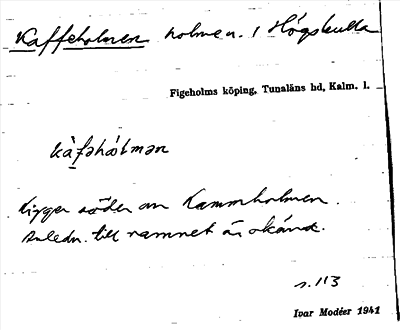 Kaffeholmen holme n. i Högskulla
Figeholms köping, Tunaläns hd, Kalm. l.
kàfəhɷ̀lmən
Ligger söder om Kammholmen.
Anledn. till namnet är okänd.
s. 113
Ivar Modéer 1941